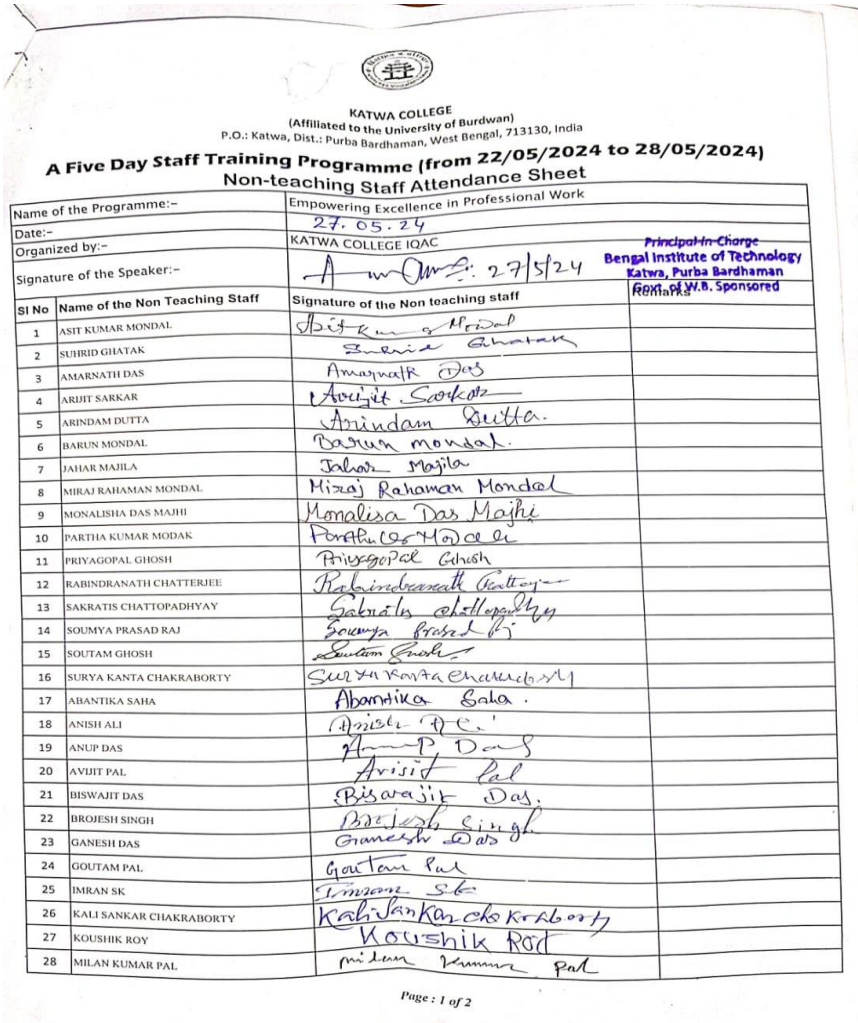 KATWA COLLEGE
(Affiliated to the University of Burdwan)
P.O.: Katwa, Dist.: Purba Bardhaman, West Bengal, 713130, India
A Five Day Staff Training Programme (from 22/05/2024 to 28/05/2024)
Non-teaching Staff Attendance Sheet
Name of the Programme:- Empowering Excellence in Professional Work
Date:- 27.05.24
Organized by:- KATWA COLLEGE IQAC
Principal-In-Charge
Bengal Institute of Technology
Katwa, Purba Bardhaman
Govt. of W.B. Sponsored
Signature of the Speaker:- 27/5/24
Sl No Name of the Non Teaching Staff Signature of the Non teaching staff Remarks
1 ASIT KUMAR MONDAL
2 SUHRID GHATAK Suhrid Ghatak
3 AMARNATH DAS Amarnath Das
4 ARIJIT SARKAR Arijit Sarkar
5 ARINDAM DUTTA Arindam Dutta.
6 BARUN MONDAL Barun mondal.
7 JAHAR MAJILA Jahar Majila
8 MIRAJ RAHAMAN MONDAL Miraj Rahaman Mondal
9 MONALISHA DAS MAJHI Monalisa Das Majhi
10 PARTHA KUMAR MODAK
11 PRIYAGOPAL GHOSH Priyagopal Ghosh
12 RABINDRANATH CHATTERJEE Rabindranath
13 SAKRATIS CHATTOPADHYAY
14 SOUMYA PRASAD RAJ Soumya Prasad Raj
15 SOUTAM GHOSH Soutam Ghosh
16 SURYA KANTA CHAKRABORTY Surya Kanta
17 ABANTIKA SAHA Abantika Saha.
18 ANISH ALI Anish Ali
19 ANUP DAS Anup Das
20 AVIJIT PAL Avisit Pal
21 BISWAJIT DAS Biswajit Das.
22 BROJESH SINGH Brojesh Singh
23 GANESH DAS Ganesh Das
24 GOUTAM PAL Goutam Pal
25 IMRAN SK Imran Sk
26 KALI SANKAR CHAKRABORTY Kali Sankar Chakraborty
27 KOUSHIK ROY Koushik Roy
28 MILAN KUMAR PAL Milan Kumar Pal
Page : 1 of 2